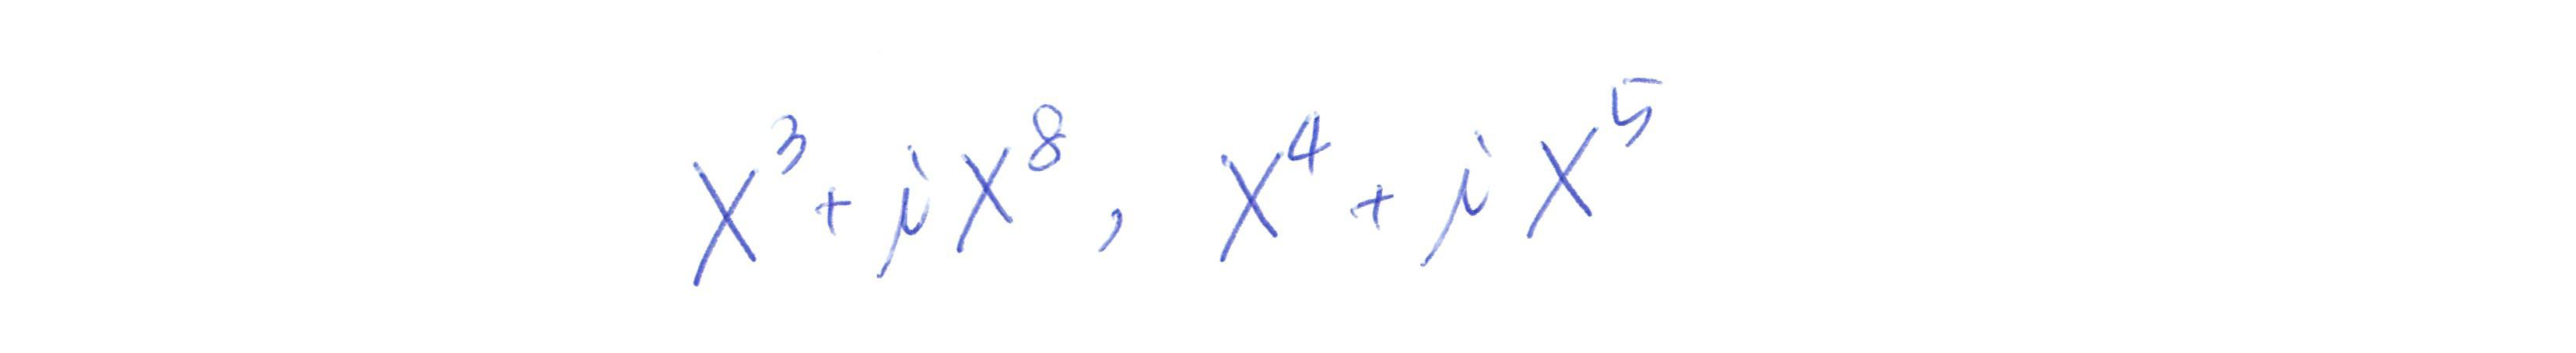 X³ + iX⁸, X⁴ + iX⁵